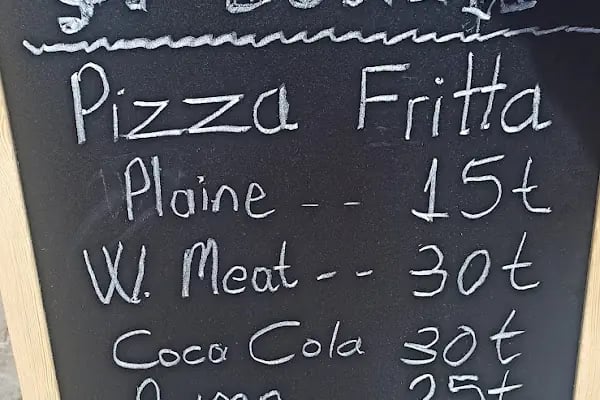 Pizza Fritta
Plaine -- 15t
W. Meat -- 30t
Coca Cola 30t
25t